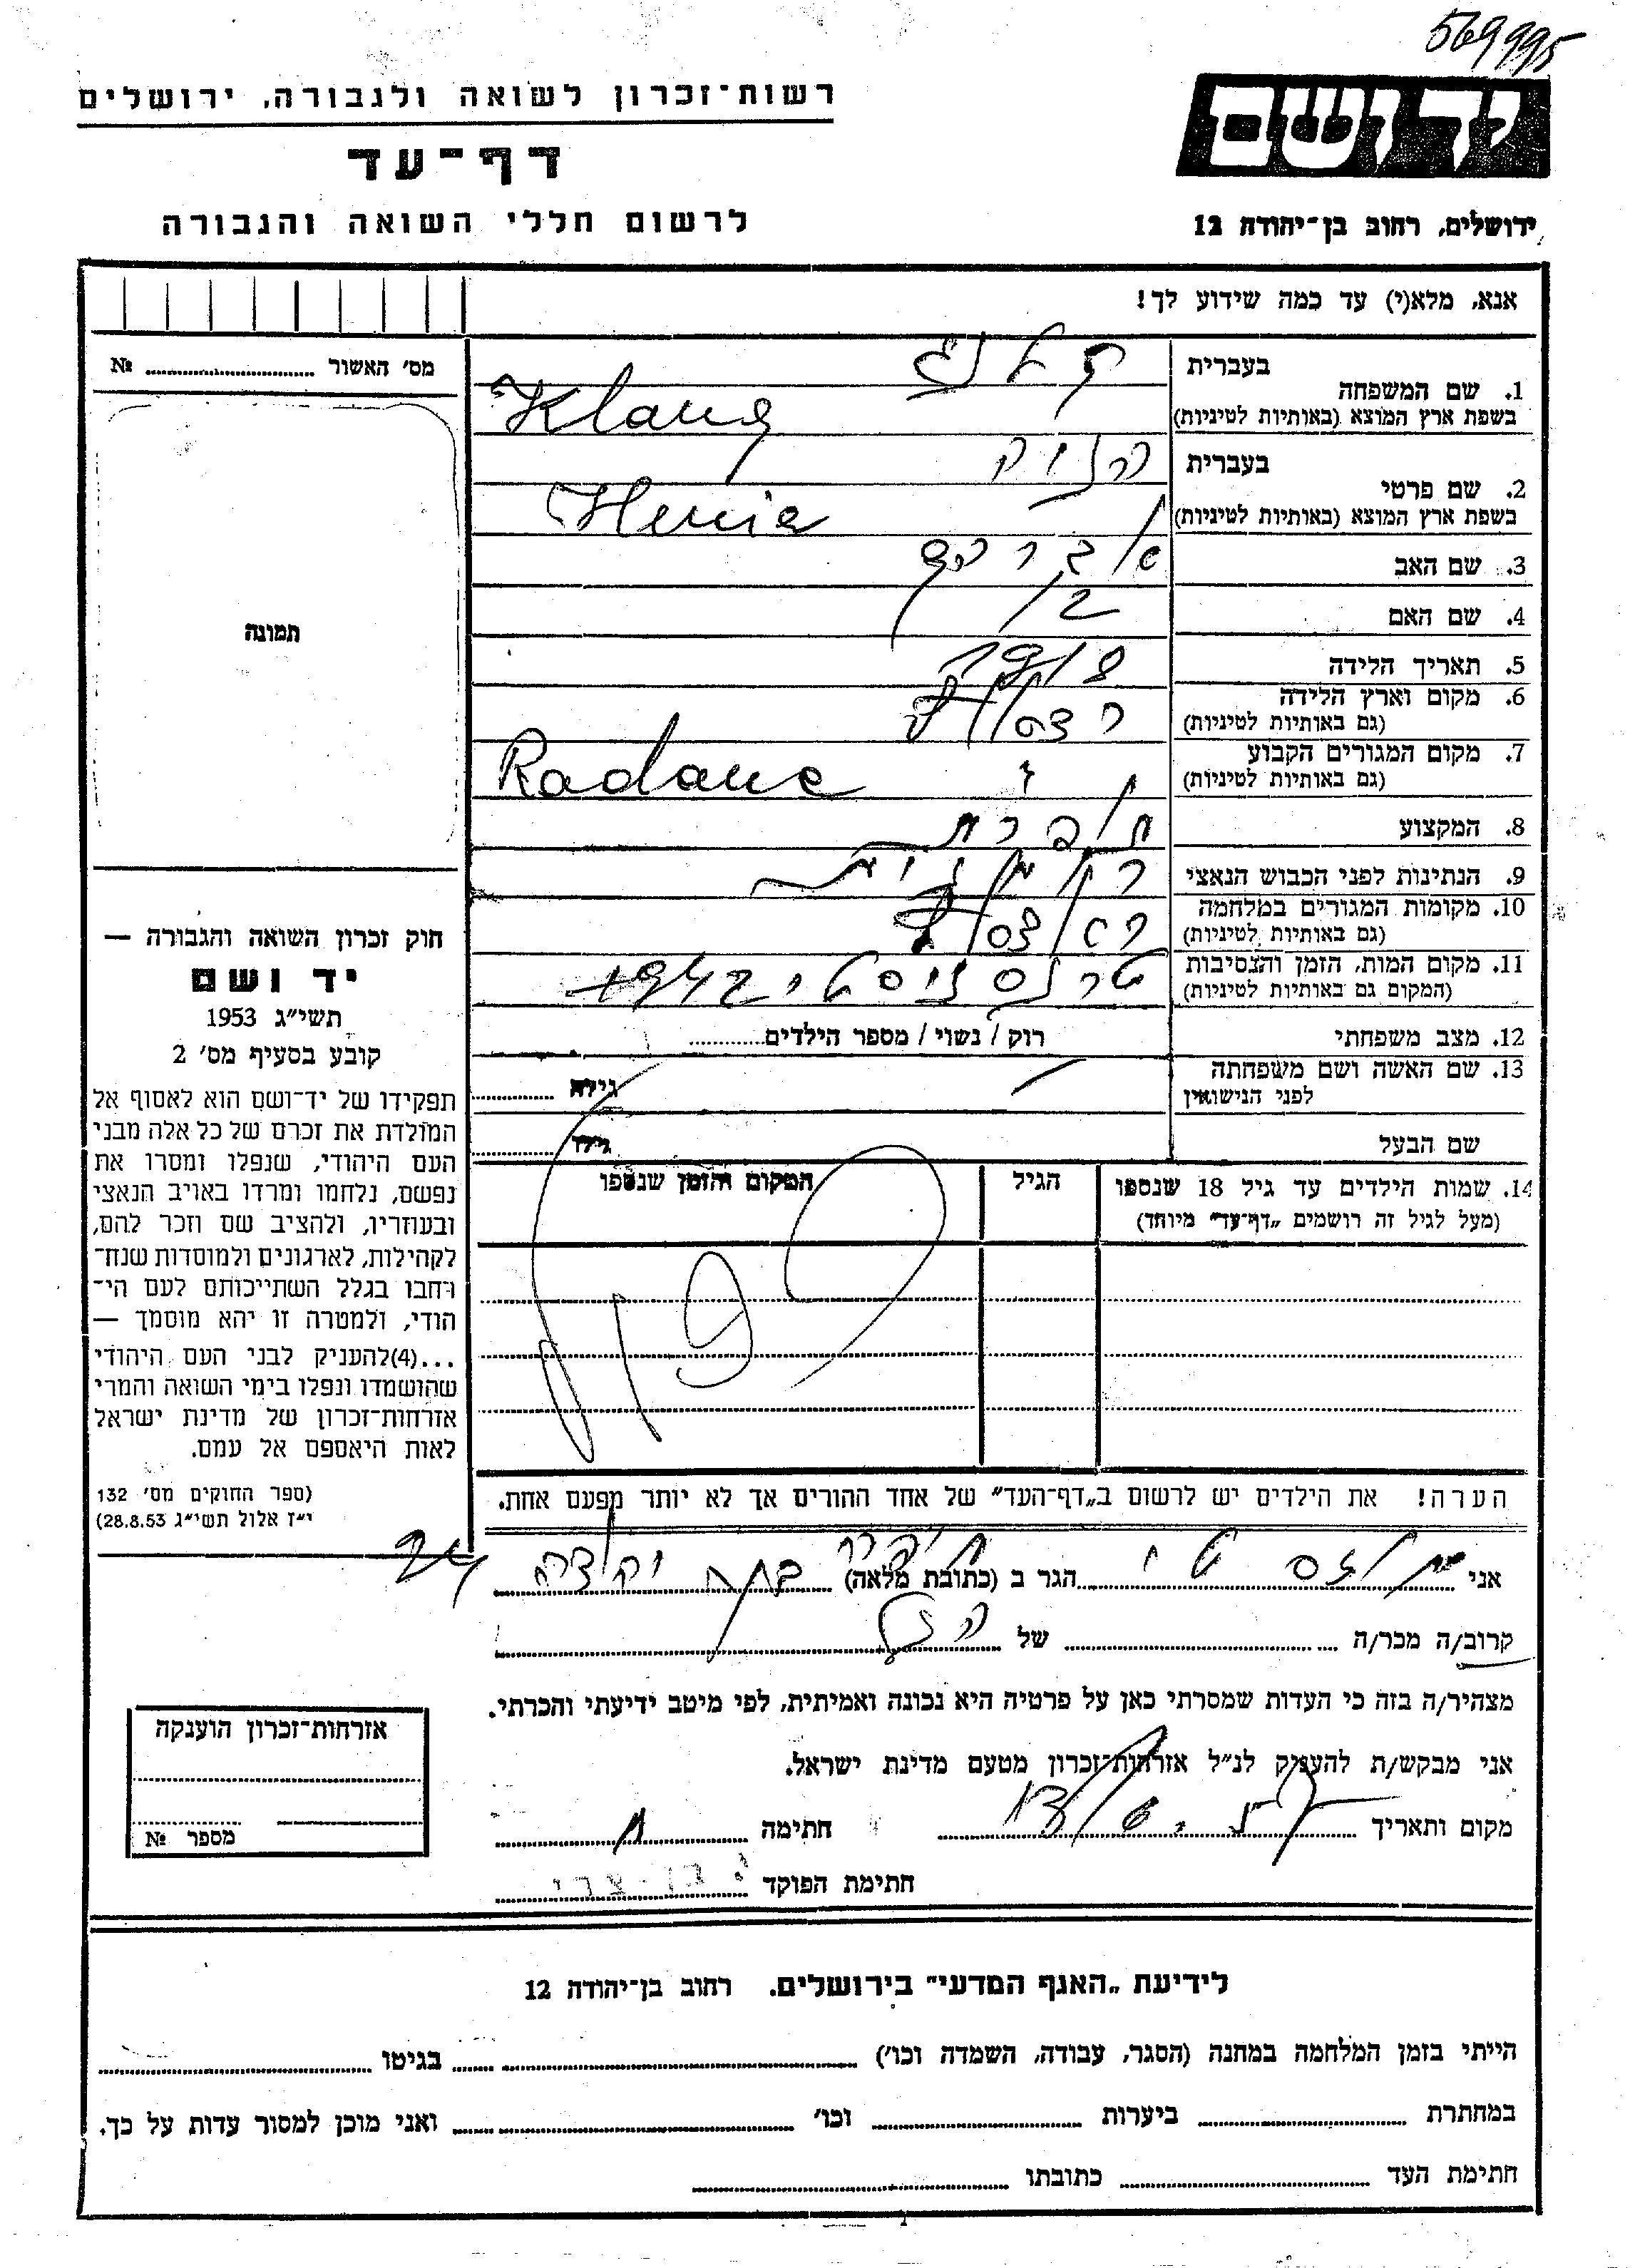 569995
יד ושם
רשות־זכרון לשואה ולגבורה, ירושלים
דף־עד
לרשום חללי השואה והגבורה
ירושלים, רחוב בן־יהודה 12
אנא, מלא(י) עד כמה שידוע לך!
מס׳ האשור ........ №
תמונה
1. שם המשפחה בעברית קלנג
בשפת ארץ המוצא (באותיות לטיניות) Klang
2. שם פרטי בעברית
בשפת ארץ המוצא (באותיות לטיניות) Henia
3. שם האב אברהם
4. שם האם
5. תאריך הלידה
6. מקום וארץ הלידה
(גם באותיות לטיניות)
7. מקום המגורים הקבוע
(גם באותיות לטיניות) Radauc
8. המקצוע תופרת
9. הנתינות לפני הכבוש הנאצי רומנית
10. מקומות המגורים במלחמה
(גם באותיות לטיניות)
11. מקום המות, הזמן והנסיבות
(המקום גם באותיות לטיניות) טרנסניסטי 1942
12. מצב משפחתי רוק / נשוי / מספר הילדים........
13. שם האשה ושם משפחתה
לפני הנישואין גילה ........
שם הבעל גילו ........
14. שמות הילדים עד גיל 18 שנספו הגיל המקום והזמן שנספו
(מעל לגיל זה רושמים „דף־עד״ מיוחד)
הערה! את הילדים יש לרשום ב„דף־העד״ של אחד ההורים אך לא יותר מפעם אחת.
חוק זכרון השואה והגבורה —
יד ושם
תשי״ג 1953
קובע בסעיף מס׳ 2
תפקידו של יד־ושם הוא לאסוף אל
המולדת את זכרם של כל אלה מבני
העם היהודי, שנפלו ומסרו את
נפשם, נלחמו ומרדו באויב הנאצי
ובעוזריו, ולהציב שם וזכר להם,
לקהילות, לארגונים ולמוסדות שנח־
רחבו בגלל השתייכותם לעם הי־
הודי, ולמטרה זו יהא מוסמך —
...(4)להעניק לבני העם היהודי
שהושמדו ונפלו בימי השואה והמרי
אזרחות־זכרון של מדינת ישראל
לאות היאספם אל עמם.
(ספר החוקים מס׳ 132
י״ז אלול תשי״ג 28.8.53)
אני ........ הגר ב (כתובת מלאה) פתח תקוה
קרוב/ה מכר/ה ........ של ........
מצהיר/ה בזה כי העדות שמסרתי כאן על פרטיה היא נכונה ואמיתית, לפי מיטב ידיעתי והכרתי.
אני מבקש/ת להעניק לנ״ל אזרחות־זכרון מטעם מדינת ישראל.
מקום ותאריך ........ חתימה ........
חתימת הפוקד ........
אזרחות־זכרון הוענקה
מספר №
לידיעת „האגף המדעי״ בירושלים. רחוב בן־יהודה 12
הייתי בזמן המלחמה במחנה (הסגר, עבודה, השמדה וכו׳) ........ בגיטו ........
במחתרת ........ ביערות ........ וכו׳ ........ ואני מוכן למסור עדות על כך.
חתימת העד ........ כתובתו ........